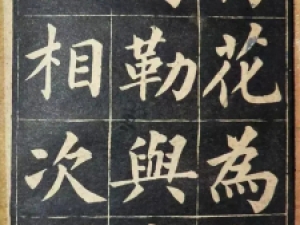 花為
勒與
相次